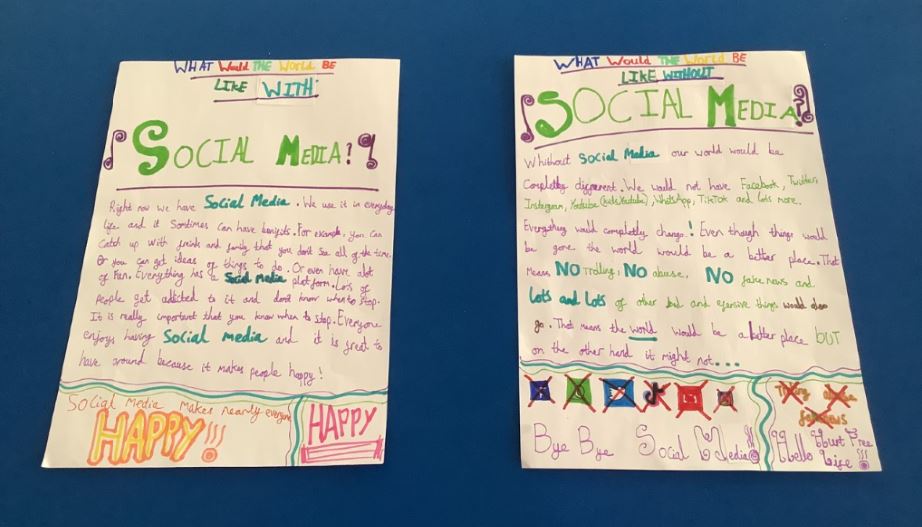 WHAT Would THE World BE
LIKE WITH
SOCIAL MEDIA?
Right now we have Social Media. We use it in everyday
life and it Somtimes can have benifits. For example, you can
Catch up with frinds and family that you don't see all of the time.
Or you can get ideas of things to do. Or even have alot
of Fun. Everything has a Social media platform. Lots of
People get addicted to it and don't know when to stop.
It is really important that you know when to stop. Everyone
enjoys having Social media and it is great to
have around because it makes people happy!
Social Media makes nearly everyone
HAPPY!!!
HAPPY
WHAT Would THE World BE
LIKE WITHOUT
SOCIAL MEDIA?
Whithout Social Media our world would be
Completly different. We would not have Facebook, Twitter,
Instergram, Youtube (kids Youtube), WhatsApp, TikTok and lots more.
Everything would completly change! Even though things would
be gone the world would be a better place. That
means NO Trolling, NO abuse, NO fake news and
Lots and Lots of other bad and offensive things would also
go. That means the world would be a better place BUT
on the other hand it might not...
Bye Bye Social Media!!!
Hello Hurt Free
Life!!!